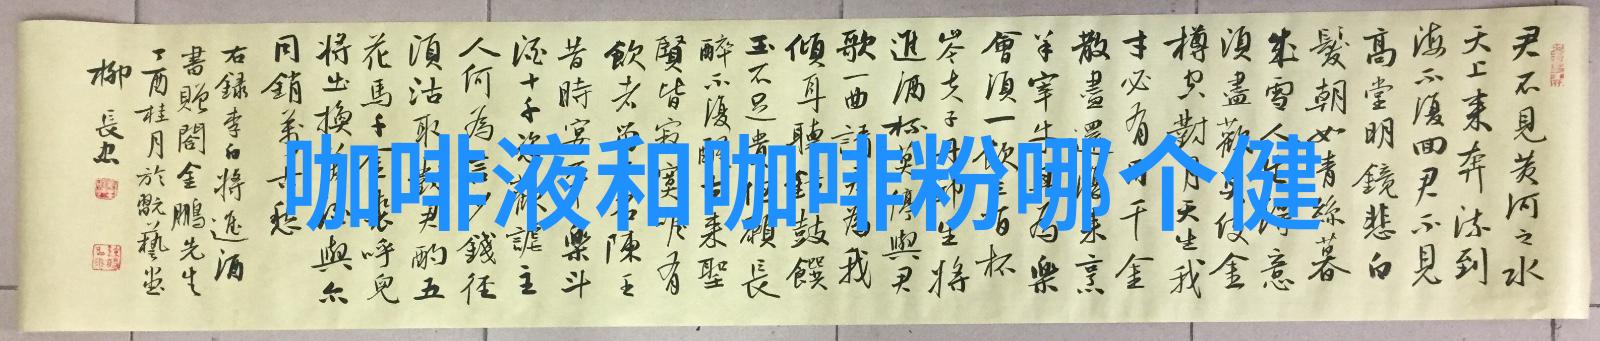 君不見黄河之水
天上来奔流到
海不復回君不見
高堂明鏡悲白
髮朝如青絲暮
成雪人生得意
須盡歡莫使金
樽空對月天生我
才必有用千金
散盡還復来烹
羊宰牛且為樂
會須一飲三百杯
岑夫子丹丘生將
進酒杯莫停與君
歌一曲請君為我
傾耳聽鐘鼓饌
玉不足貴但願長
醉不復醒古来聖
賢皆寂寞惟有
飲者留其名陳王
昔時宴平樂斗
酒十千恣歡謔主
人何為言少錢径
須沽取對君酌五
花馬千金裘呼兒
將出換美酒與尔
同銷萬古愁
右録李白將進酒
書贈閻金鵬先生
丁酉桂月於翫藝堂
柳長忠
咖啡液和咖啡粉哪个健